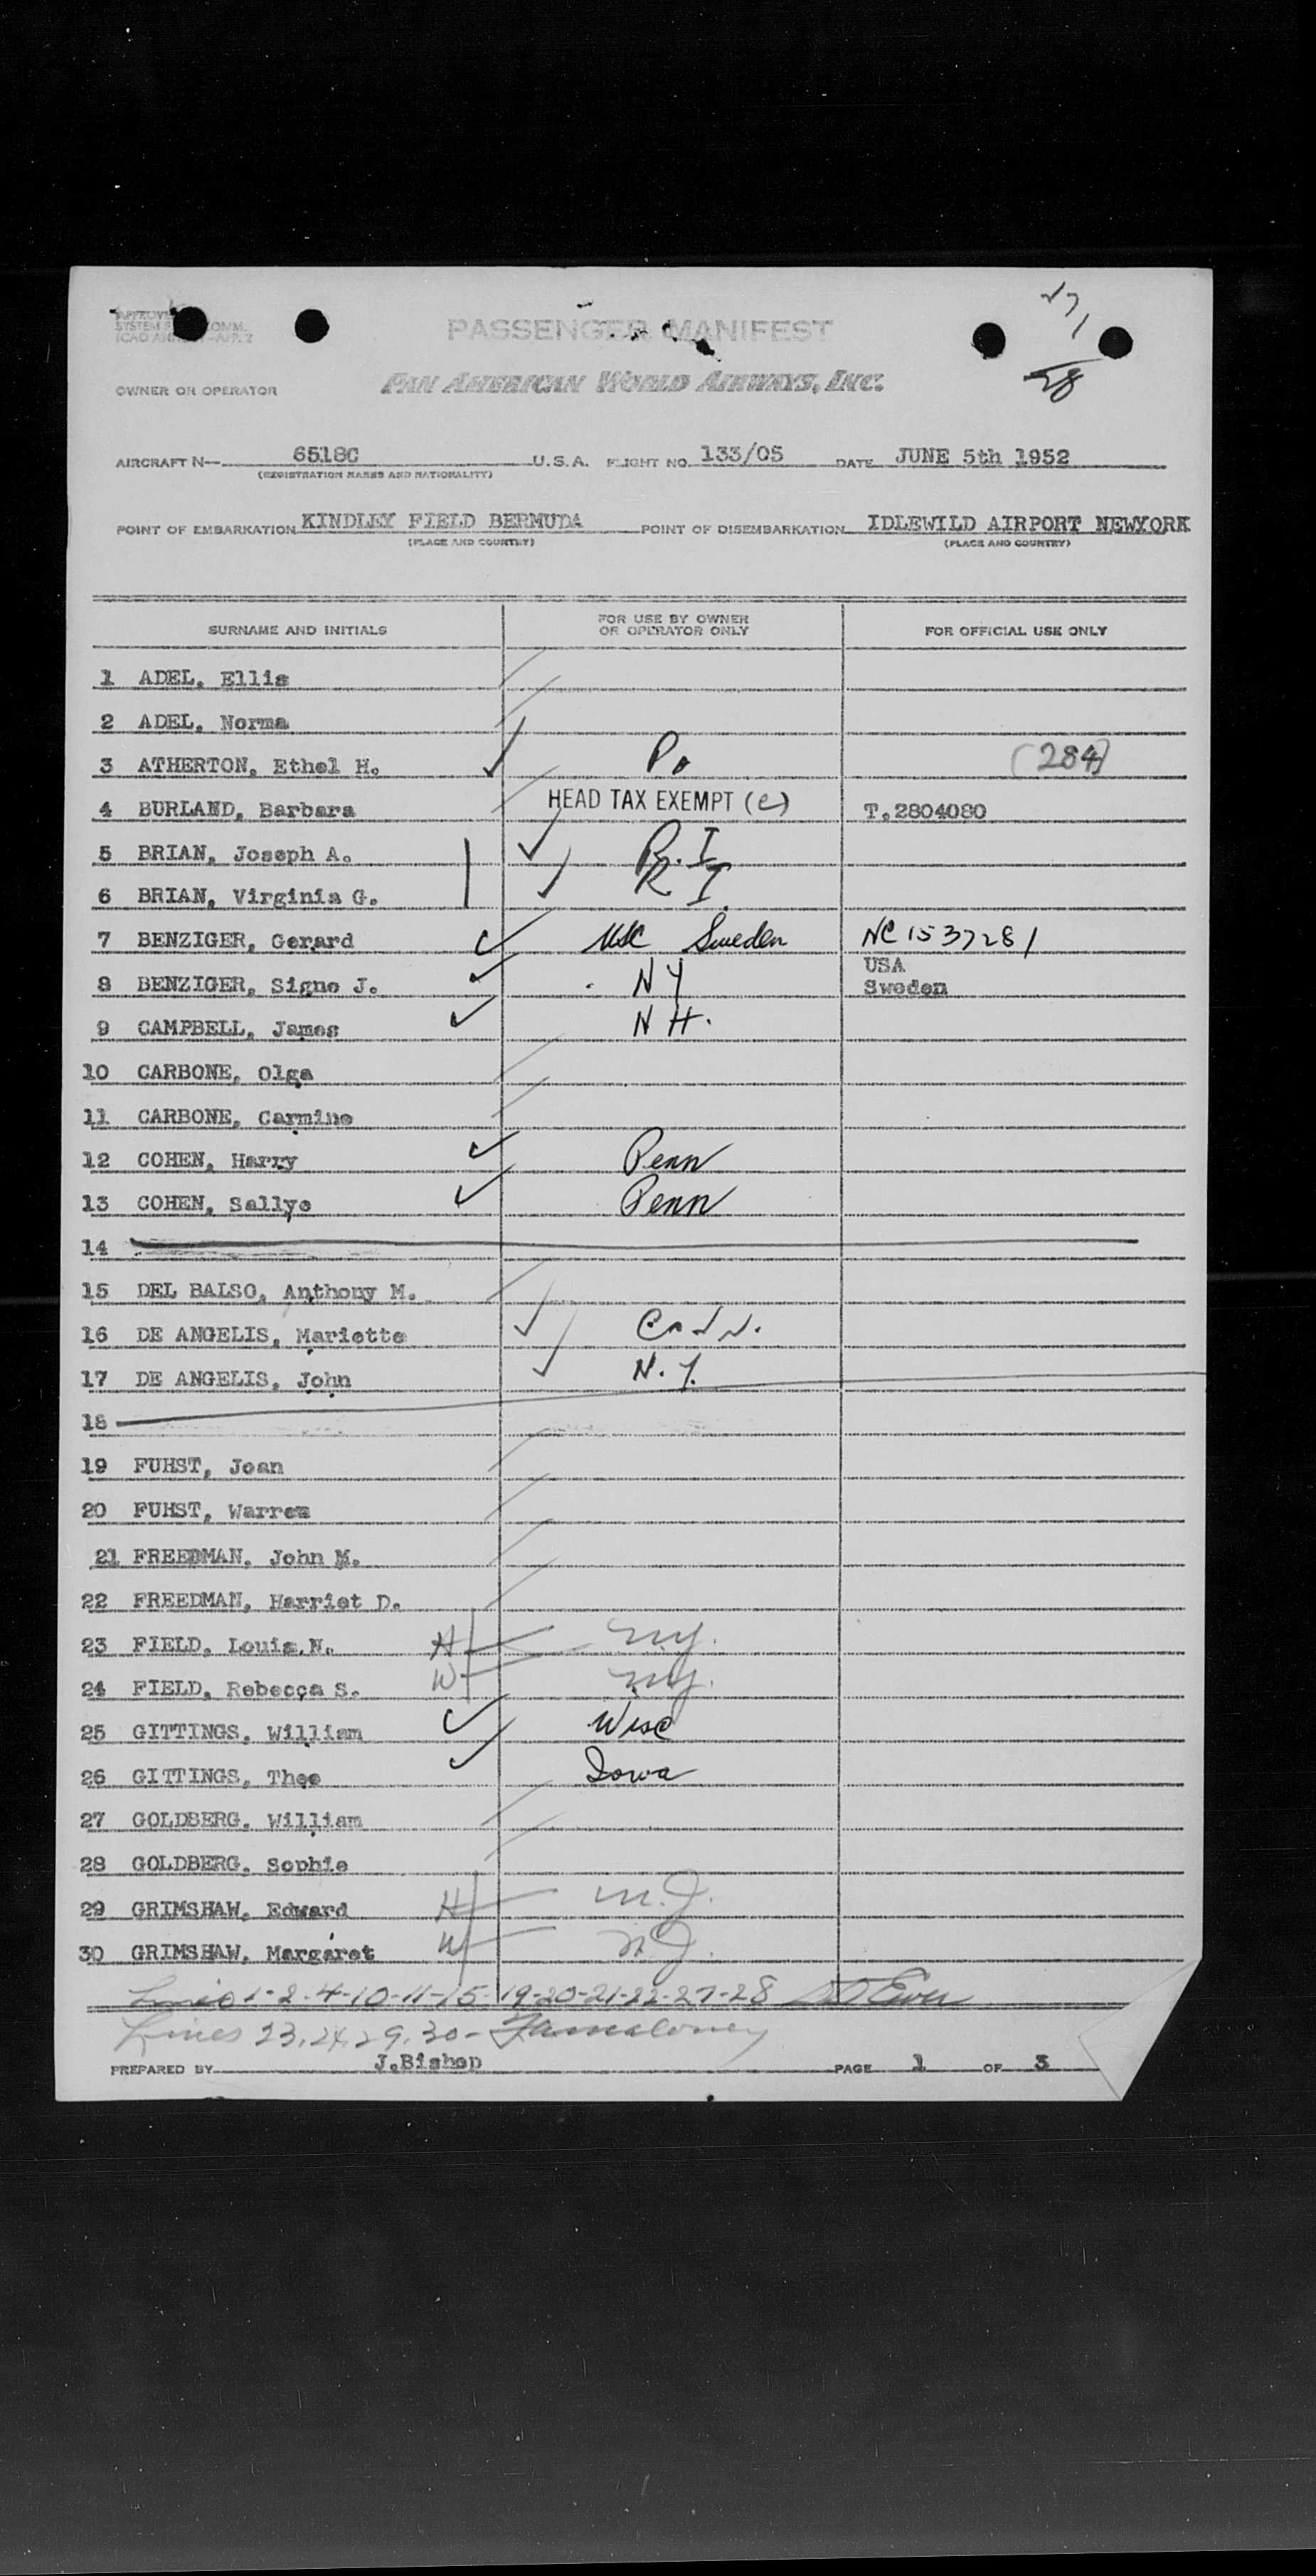 PASSENGER MANIFEST
28
OWNER OR OPERATOR PAN AMERICAN WORLD AIRWAYS, INC.
AIRCRAFT N— 6518C U.S.A. FLIGHT NO. 133/05 DATE JUNE 5th 1952
(REGISTRATION MARKS AND NATIONALITY)
POINT OF EMBARKATION KINDLEY FIELD BERMUDA POINT OF DISEMBARKATION IDLEWILD AIRPORT NEWYORK
(PLACE AND COUNTRY) (PLACE AND COUNTRY)
SURNAME AND INITIALS FOR USE BY OWNER OR OPERATOR ONLY FOR OFFICIAL USE ONLY
1 ADEL, Ellis
2 ADEL, Norma
3 ATHERTON, Ethel H. Pa (284)
4 BURLAND, Barbara HEAD TAX EXEMPT (e) T.2804080
5 BRIAN, Joseph A. R.I
6 BRIAN, Virginia G. R I.
7 BENZIGER, Gerard Sweden NC 1537281
USA
8 BENZIGER, Signe J. N Y Sweden
9 CAMPBELL, James N H.
10 CARBONE, Olga
11 CARBONE, Carmine
12 COHEN, Harry Penn
13 COHEN, Sallye Penn
14
15 DEL BALSO, Anthony M.
16 DE ANGELIS, Mariette
17 DE ANGELIS, John N.Y.
18
19 FUHST, Joan
20 FUHST, Warren
21 FREEDMAN, John M.
22 FREEDMAN, Harriet D.
23 FIELD, Louis N. H N.Y.
24 FIELD, Rebecca S. W N.Y.
25 GITTINGS, William Wisc
26 GITTINGS, Theo Iowa
27 GOLDBERG, William
28 GOLDBERG, Sophie
29 GRIMSHAW, Edward H N.J.
30 GRIMSHAW, Margaret W N.J.
Lines 1-2-4-10-11-15-19-20-21-22-27-28
Lines 23.24.29.30-
PREPARED BY J.Bishop PAGE 1 OF 3